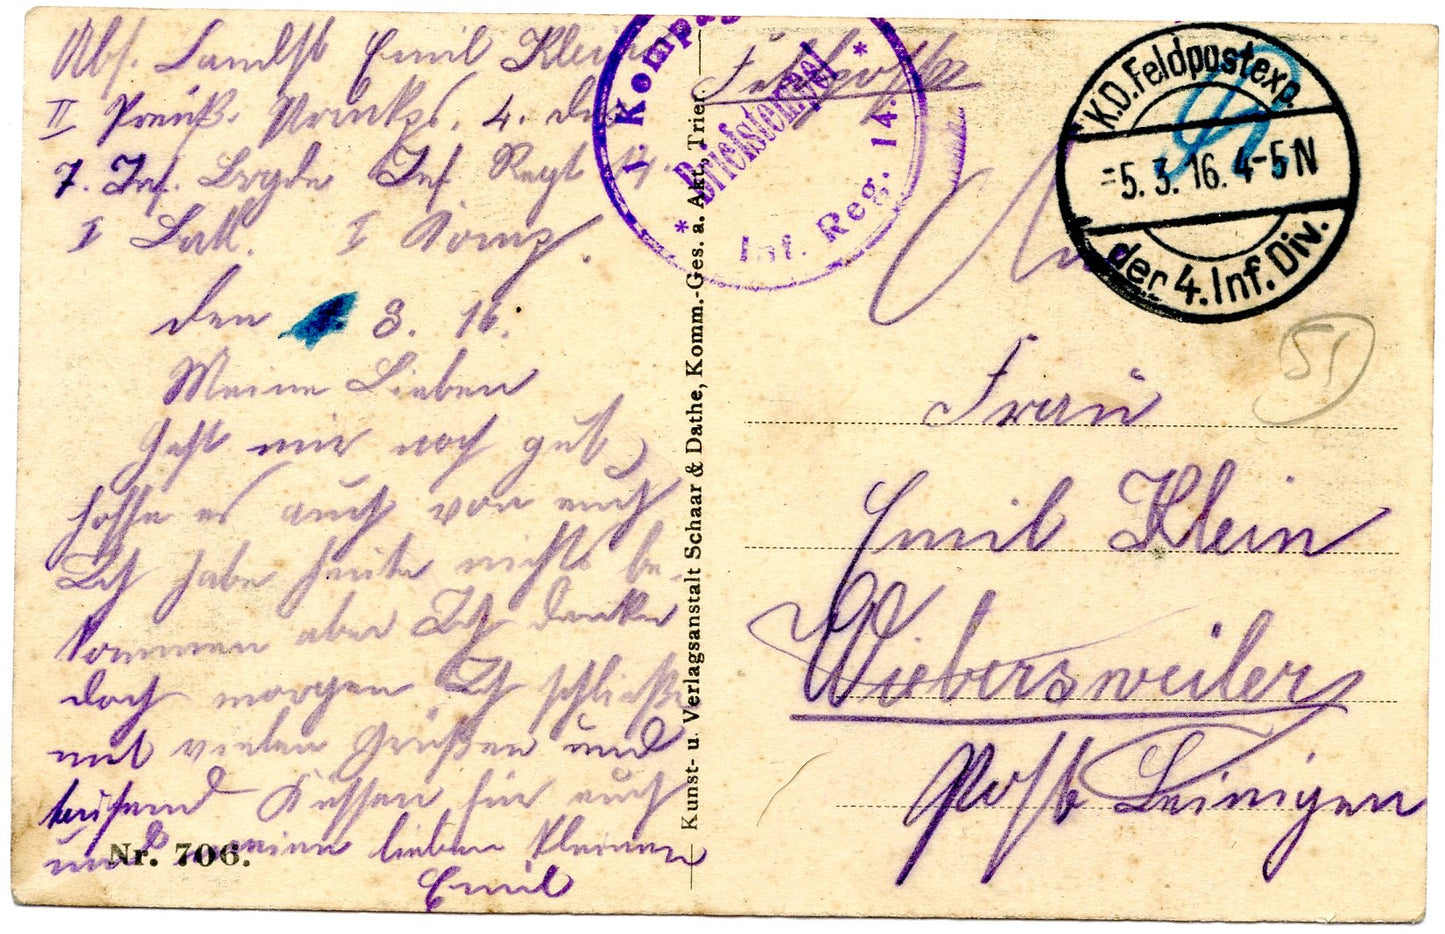 Abs. Landst Emil Klein
II Preuß. Armkps. 4. Div
7. Inf. Brgde Inf. Regt 14.
I Batl. I Komp.
den 3. 16.
Meine Lieben
Geht mir noch gut
hoffe es auch von euch
Ich habe heute nichts be-
kommen aber Ich denke
doch morgen Ich schließe
mit vielen Grüßen und
tausend Küssen für euch
und meine lieben kleinen
Emil
Nr. 706.
Kunst- u. Verlagsanstalt Schaar & Dathe, Komm.-Ges. a. Akt., Trier.
1. Kompag
* Briefstempel *
Inf. Reg. 14.
Feldpost
K.D. Feldpostexp.
-5.3.16. 4-5 N
der 4. Inf. Div.
51
Frau
Emil Klein
Wiebersweiler
Post Leinigen